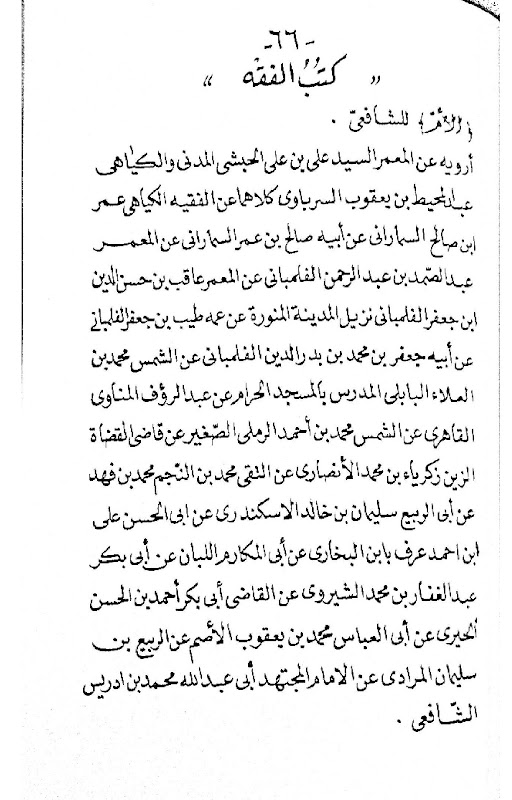 -٦٦-
" كتبُ الفقه "
﴿الأم﴾ للشافعيّ .
أرويه عن المعمر السيد على بن على الحبشى المدنى والكياهى
عبد المحيط بن يعقوب السرباوى كلاهما عن الفقيه الكياهى عمر
ابن صالح السمارانى عن أبيه صالح بن عمر السمارانى عن المعمر
عبد الصّمد بن عبد الرحمن الفلمبانى عن المعمر عاقب بن حسن الدين
ابن جعفر الفلمبانى نزيل المدينة المنورة عن عمه طيب بن جعفر الفلمبانى
عن أبيه جعفر بن محمد بن بدر الدين الفلمبانى عن الشمس محمد بن
العلاء البابلى المدرس بالمسجد الحرام عن عبد الرؤف المناوى
القاهرى عن الشمس محمد بن أحمد الرملى الصّغير عن قاضى القضاة
الزين زكرياء بن محمد الأنصارى عن التقى محمد بن النّجم محمد بن فهد
عن أبى الربيع سليمان بن خالد الاسكندرى عن ابى الحسن على
ابن احمد عرف بابن البخارى عن أبى المكارم اللبان عن أبى بكر
عبد الغفار بن محمد الشيروى عن القاضى أبى بكر أحمد بن الحسن
الحيرى عن أبى العباس محمد بن يعقوب الأصم عن الربيع بن
سليمان المرادى عن الامام المجتهد أبى عبد الله محمد بن ادريس
الشّافعى .